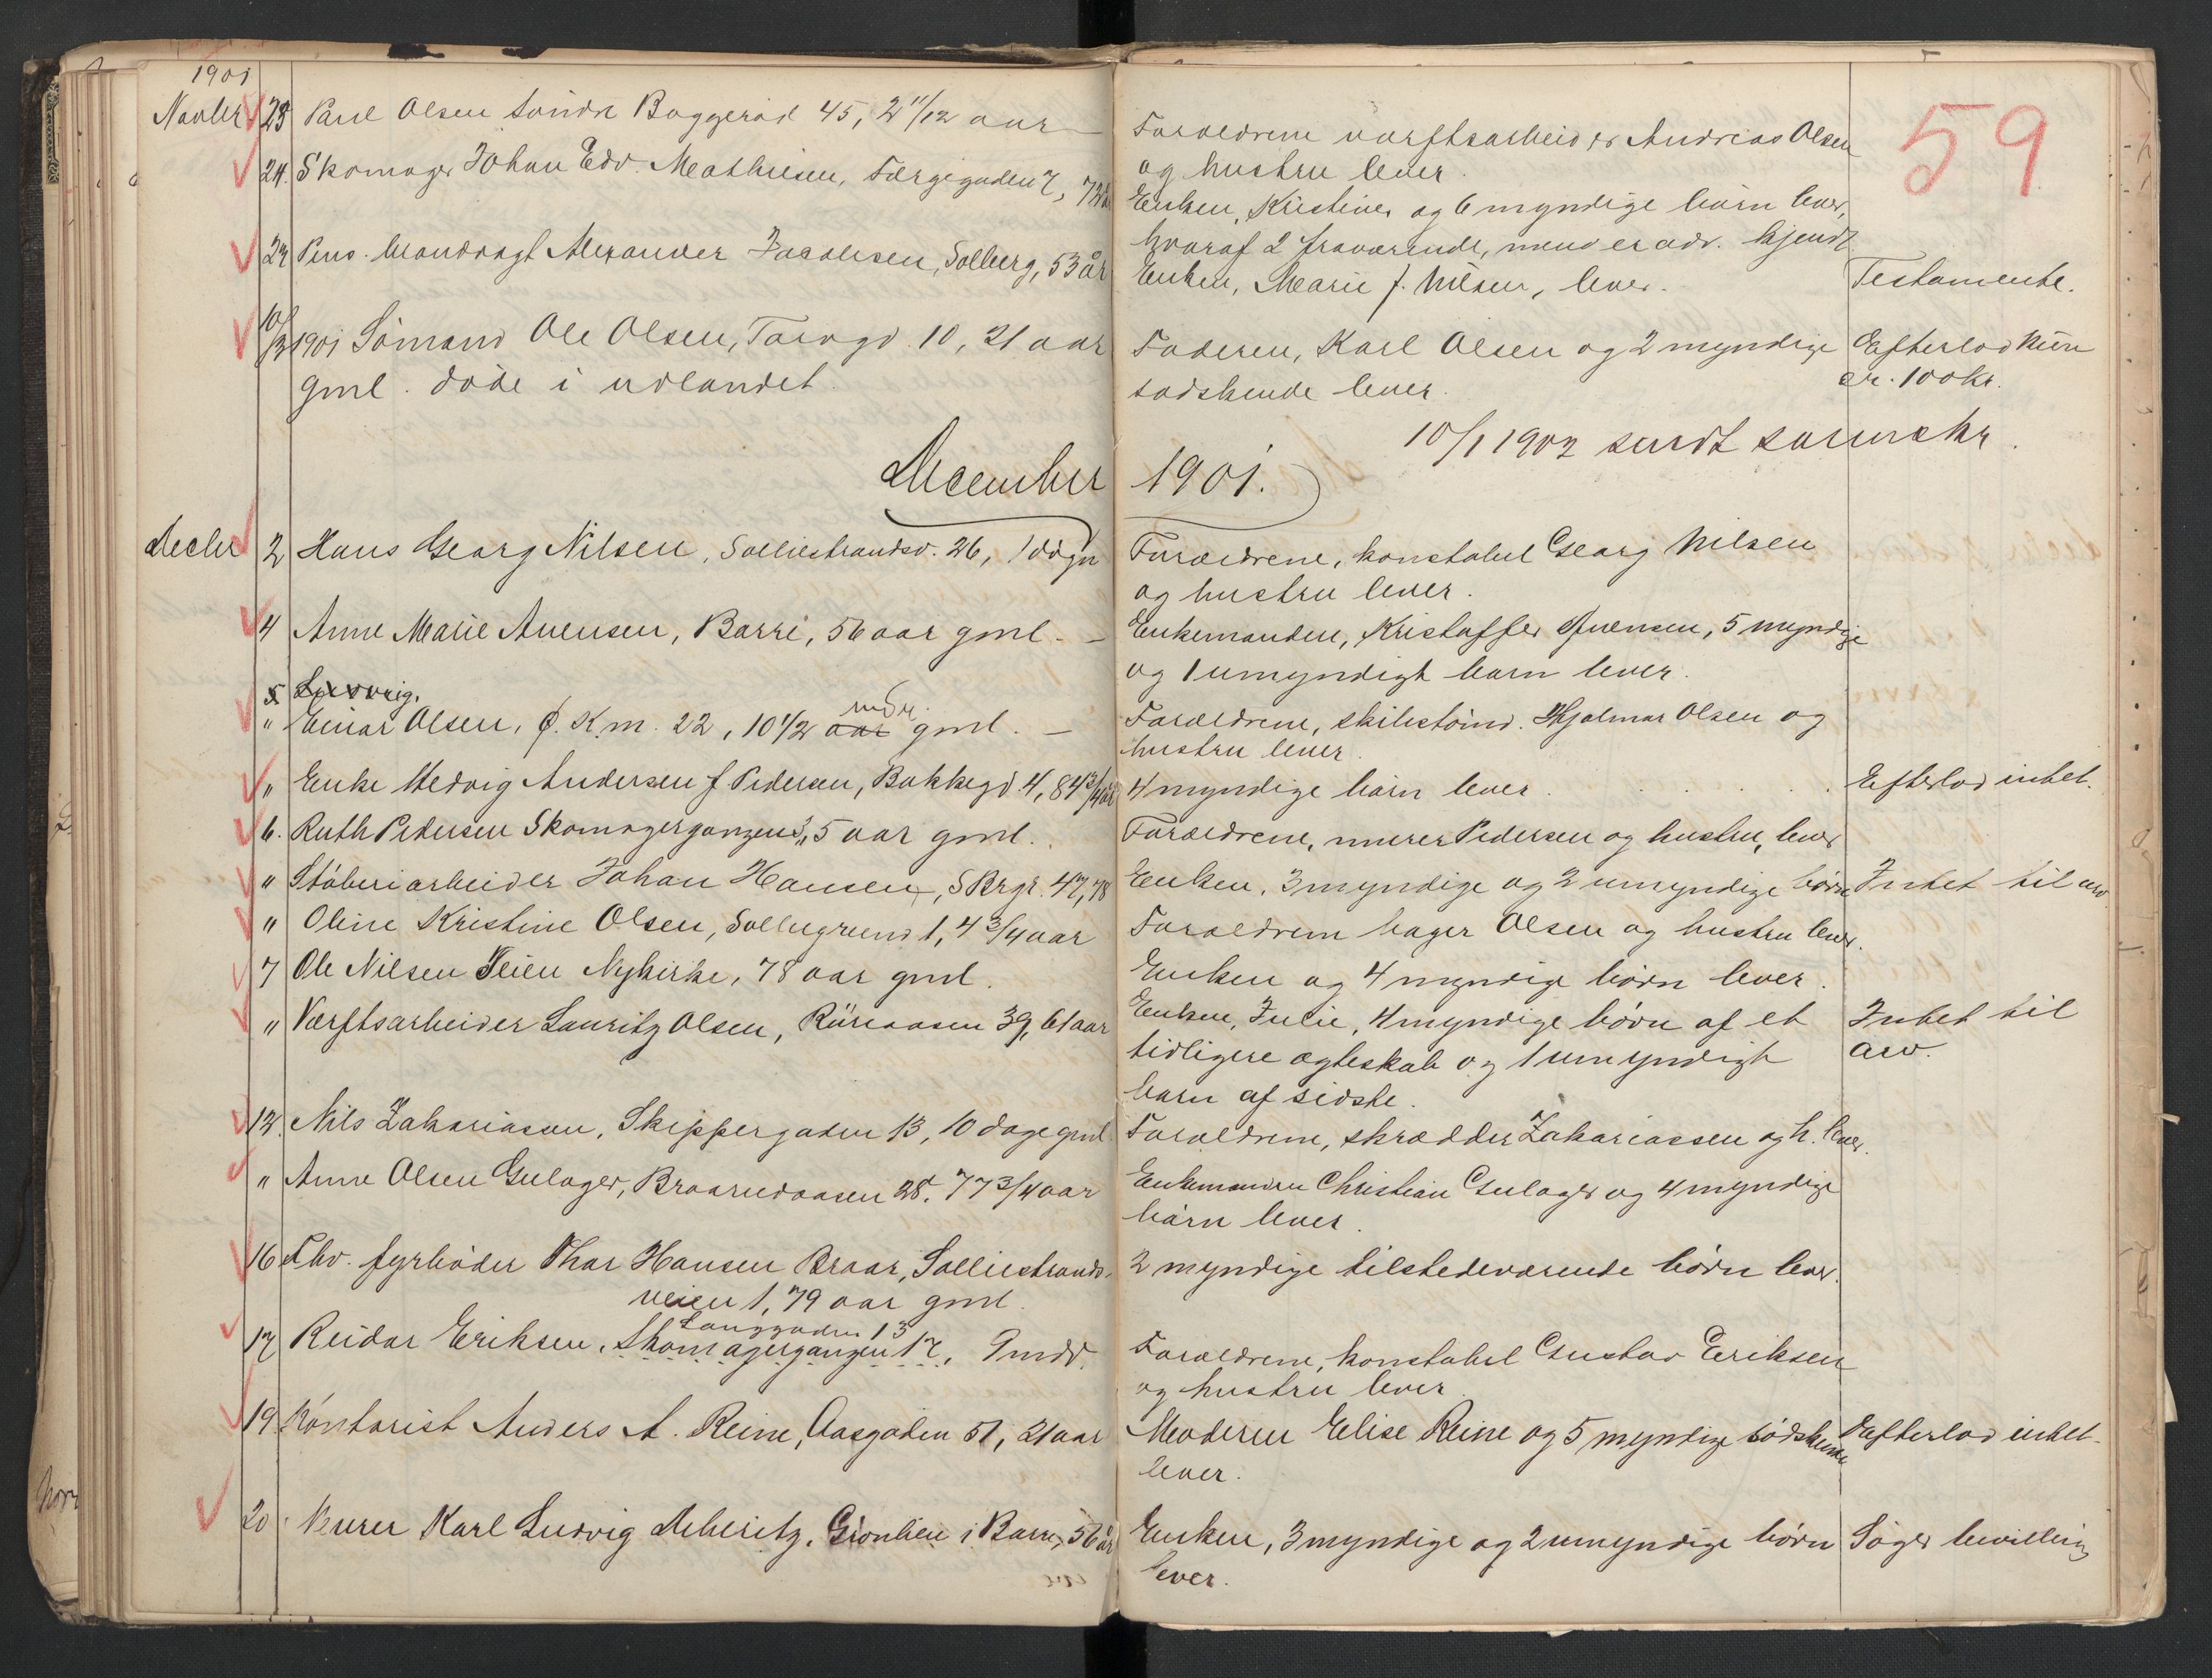 1901
59
Novbr 23 Paul Olsen Søndre Baggerød 45, 2 11/12 aar
Forældrene værftsarbeider Andreas Olsen
og hustru lever.
24. Skomager Johan Edv. Mathisen, Færgegaden 7, 72 år
Enken, Kristine, og 6 myndige børn lever,
hvoraf 2 fraværende, mend er adr. kjendt
27 Pens. Alexander Jacobsen, Solberg, 53 år
Enken, Marie f. Nilsen, lever.
Testamente.
10/3 1901 Sømand Ole Olsen, Torvgd 10, 21 aar
Faderen, Karl Olsen og 2 myndige
Efterlod kun
gml. døde i udlandet.
sødskende lever.
ca. 100 kr.
10/1 1902 sendt
December 1901.
Decbr 2 Hans Georg Nilsen, Solliestrandsv. 26, 1 døgn
Forældrene, konstabel Georg Nilsen
og hustru lever.
4 Anne Marie Svensen, Borre, 56 aar gml. –
Enkemanden, Kristoffer Svensen, 5 myndige
og 1 umyndigt barn lever.
5 Ludvig.
mdr.
" Einar Olsen, Ø. K. m. 22, 10 1/2 aar gml. –
Forældrene, skibstømd. Hjalmar Olsen og
hustru lever.
" Enke Hedvig Andersen f Pedersen, Bakkegd. 4, 84 3/4 år
4 myndige børn lever.
Efterlod intet.
6. Ruth Pedersen Skomagergangen 3, 5 aar gml.
Forældrene, murer Pedersen og hustru, lever
" Støberiarbeider Johan Hansen, S Brgr. 47, 78
Enken, 3 myndige og 2 umyndige børn
Intet til arv.
" Oline Kristine Olsen, Sollugrund 1, 4 3/4 aar
Forældrene bager Olsen og hustru lever.
7 Ole Nilsen Veien Nykirke, 78 aar gml.
Enken og 4 myndige børn lever.
" Værftsarbeider Lauritz Olsen, Røraasen 39, 61 aar
Enken, Julie, 4 myndige børn af et
Intet til
tidligere ægteskab og 1 umyndigt
arv.
barn af sidste.
12. Nils Zakariasen, Skippergaden 13, 10 dage gml.
Forældrene, skrædder Zakariassen og h. lever.
" Anne Olsen Gulager, Braarudaasen 28. 77 3/4 aar
Enkemanden Christian Gulager og 4 myndige
børn lever.
16 Fhv. fyrbøder Thor Hansen Braar, Solliestrands-
2 myndige tilstedeværende børn lever.
veien 1, 79 aar gml.
Langgaden 13
17 Reidar Eriksen, Skomagergangen 17, 9 mdr.
Forældrene, konstabel Gustav Eriksen
og hustru lever
19 Kontorist Anders A. Reine, Aasgaden 51, 21 aar
Moderen Elise Reine og 5 myndige sødskende
Efterlod intet.
lever.
20. Murer Karl Ludvig Deberitz, Grønlien i Borre, 56 år
Enken, 3 myndige og 2 umyndige børn
Søger bevilling
lever.